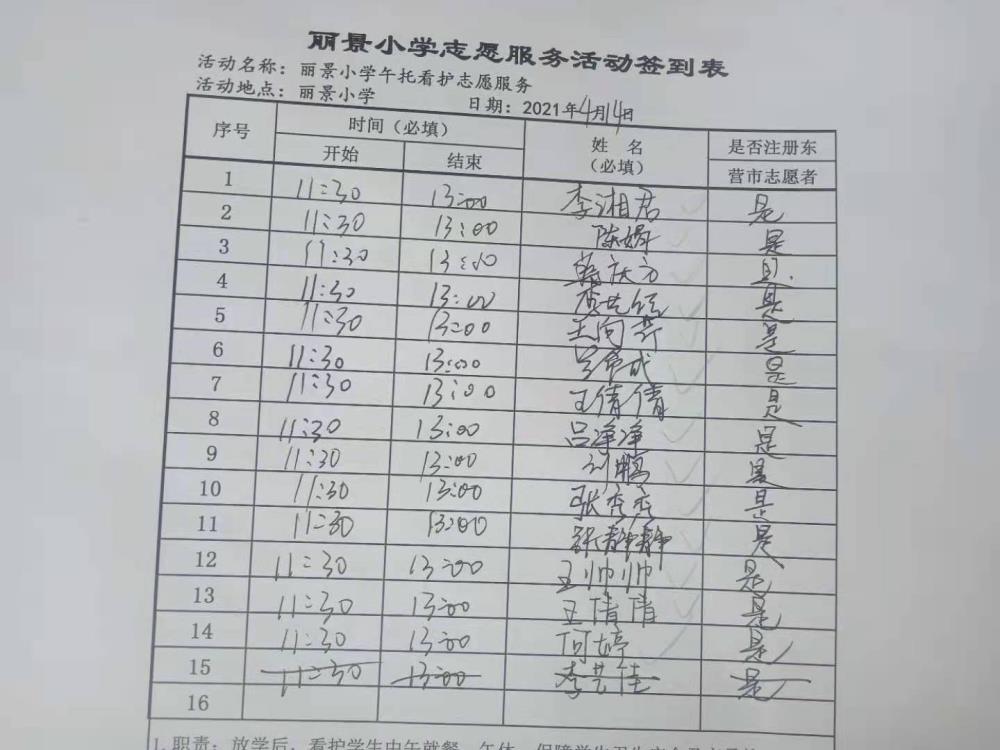 丽景小学志愿服务活动签到表
活动名称：丽景小学午托看护志愿服务
活动地点：丽景小学 日期：2021年4月14日
序号 时间（必填） 姓名（必填） 是否注册东营市志愿者
开始 结束
1 11:30 13:00 李湘君 是
2 11:30 13:00 陈娟 是
3 11:30 13:00 是
4 11:30 13:00 是
5 11:30 13:00 是
6 11:30 13:00 是
7 11:30 13:00 王倩倩 是
8 11:30 13:00 吕净净 是
9 11:30 13:00 刘鹏 是
10 11:30 13:00 张秀秀 是
11 11:30 13:00 张静静 是
12 11:30 13:00 王帅帅 是
13 11:30 13:00 王倩倩 是
14 11:30 13:00 何婷 是
15 11:30 13:00 李艺佳 是
16
1.职责：放学后，看护学生中午就餐、午休，保障学生